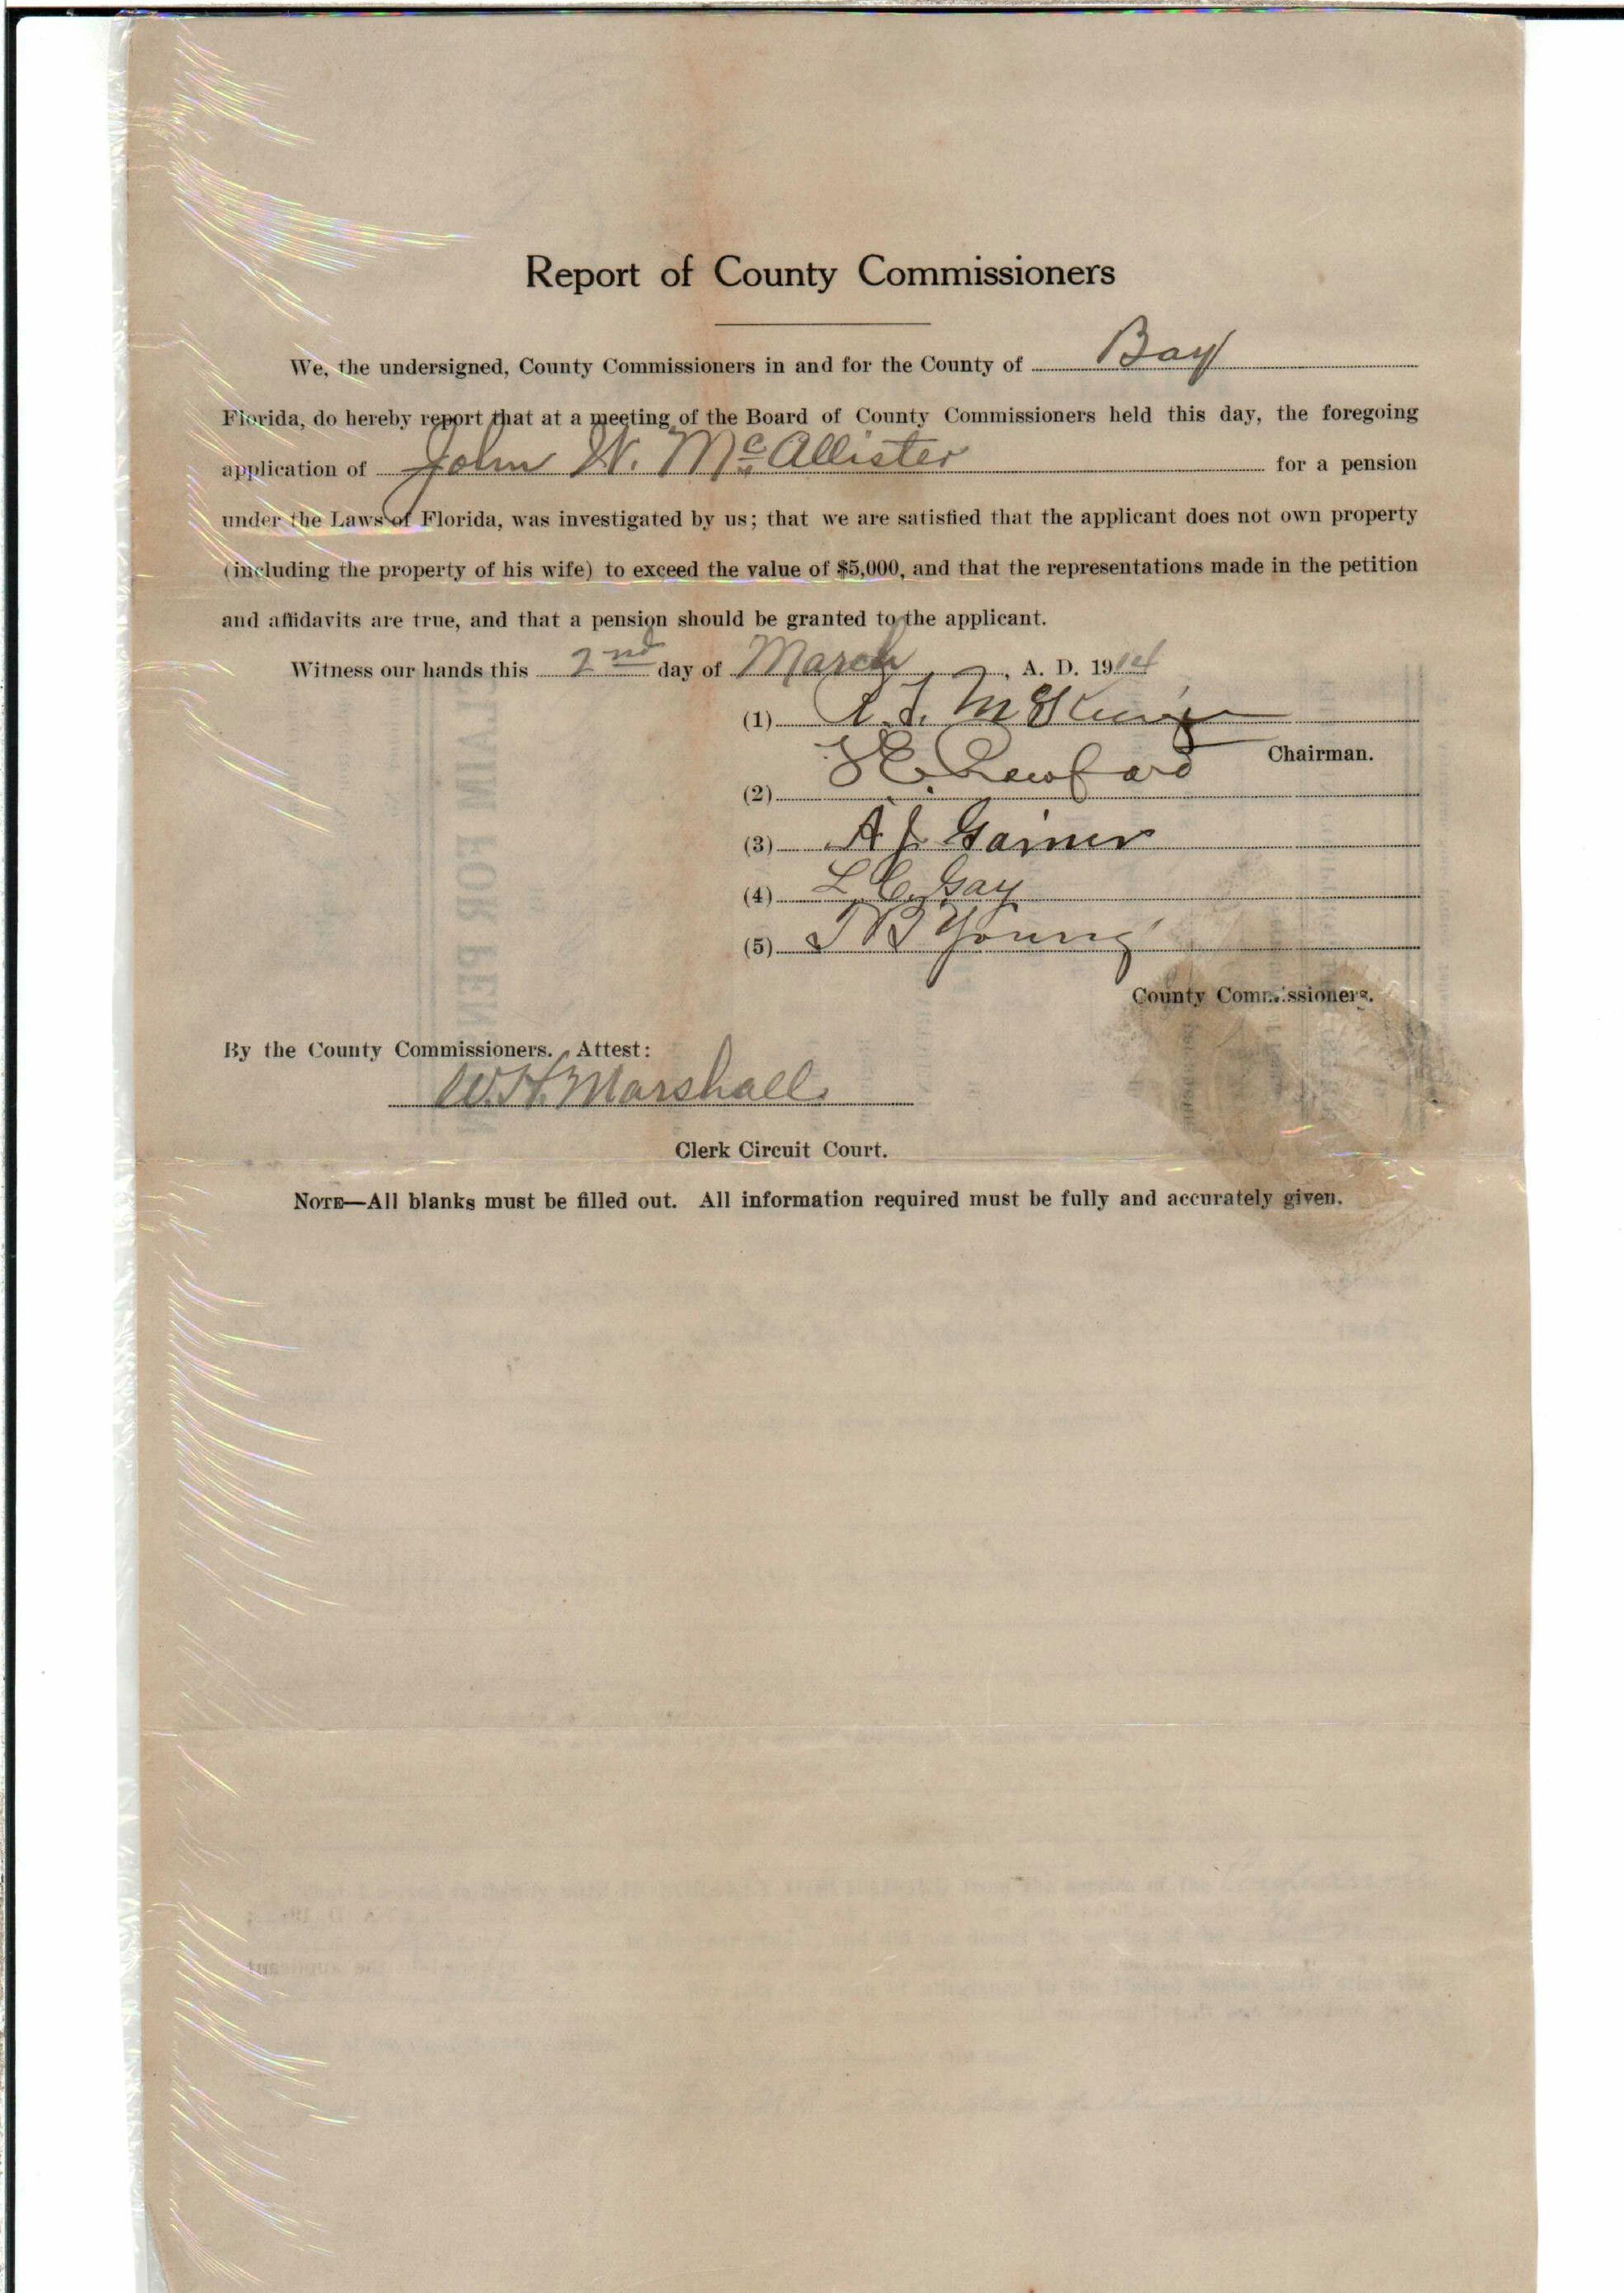 Report of County Commissioners
We, the undersigned, County Commissioners in and for the County of Bay
Florida, do hereby report that at a meeting of the Board of County Commissioners held this day, the foregoing
application of John W. McAllister for a pension
under the Laws of Florida, was investigated by us; that we are satisfied that the applicant does not own property
(including the property of his wife) to exceed the value of $5,000, and that the representations made in the petition
and affidavits are true, and that a pension should be granted to the applicant.
Witness our hands this 2nd day of March, A. D. 1914
(1)
Chairman.
(2)
(3) A J Gainer
(4) L. C. Gay
(5) Young
County Commissioners.
By the County Commissioners. Attest:
W.H. Marshall
Clerk Circuit Court.
NOTE—All blanks must be filled out. All information required must be fully and accurately given.